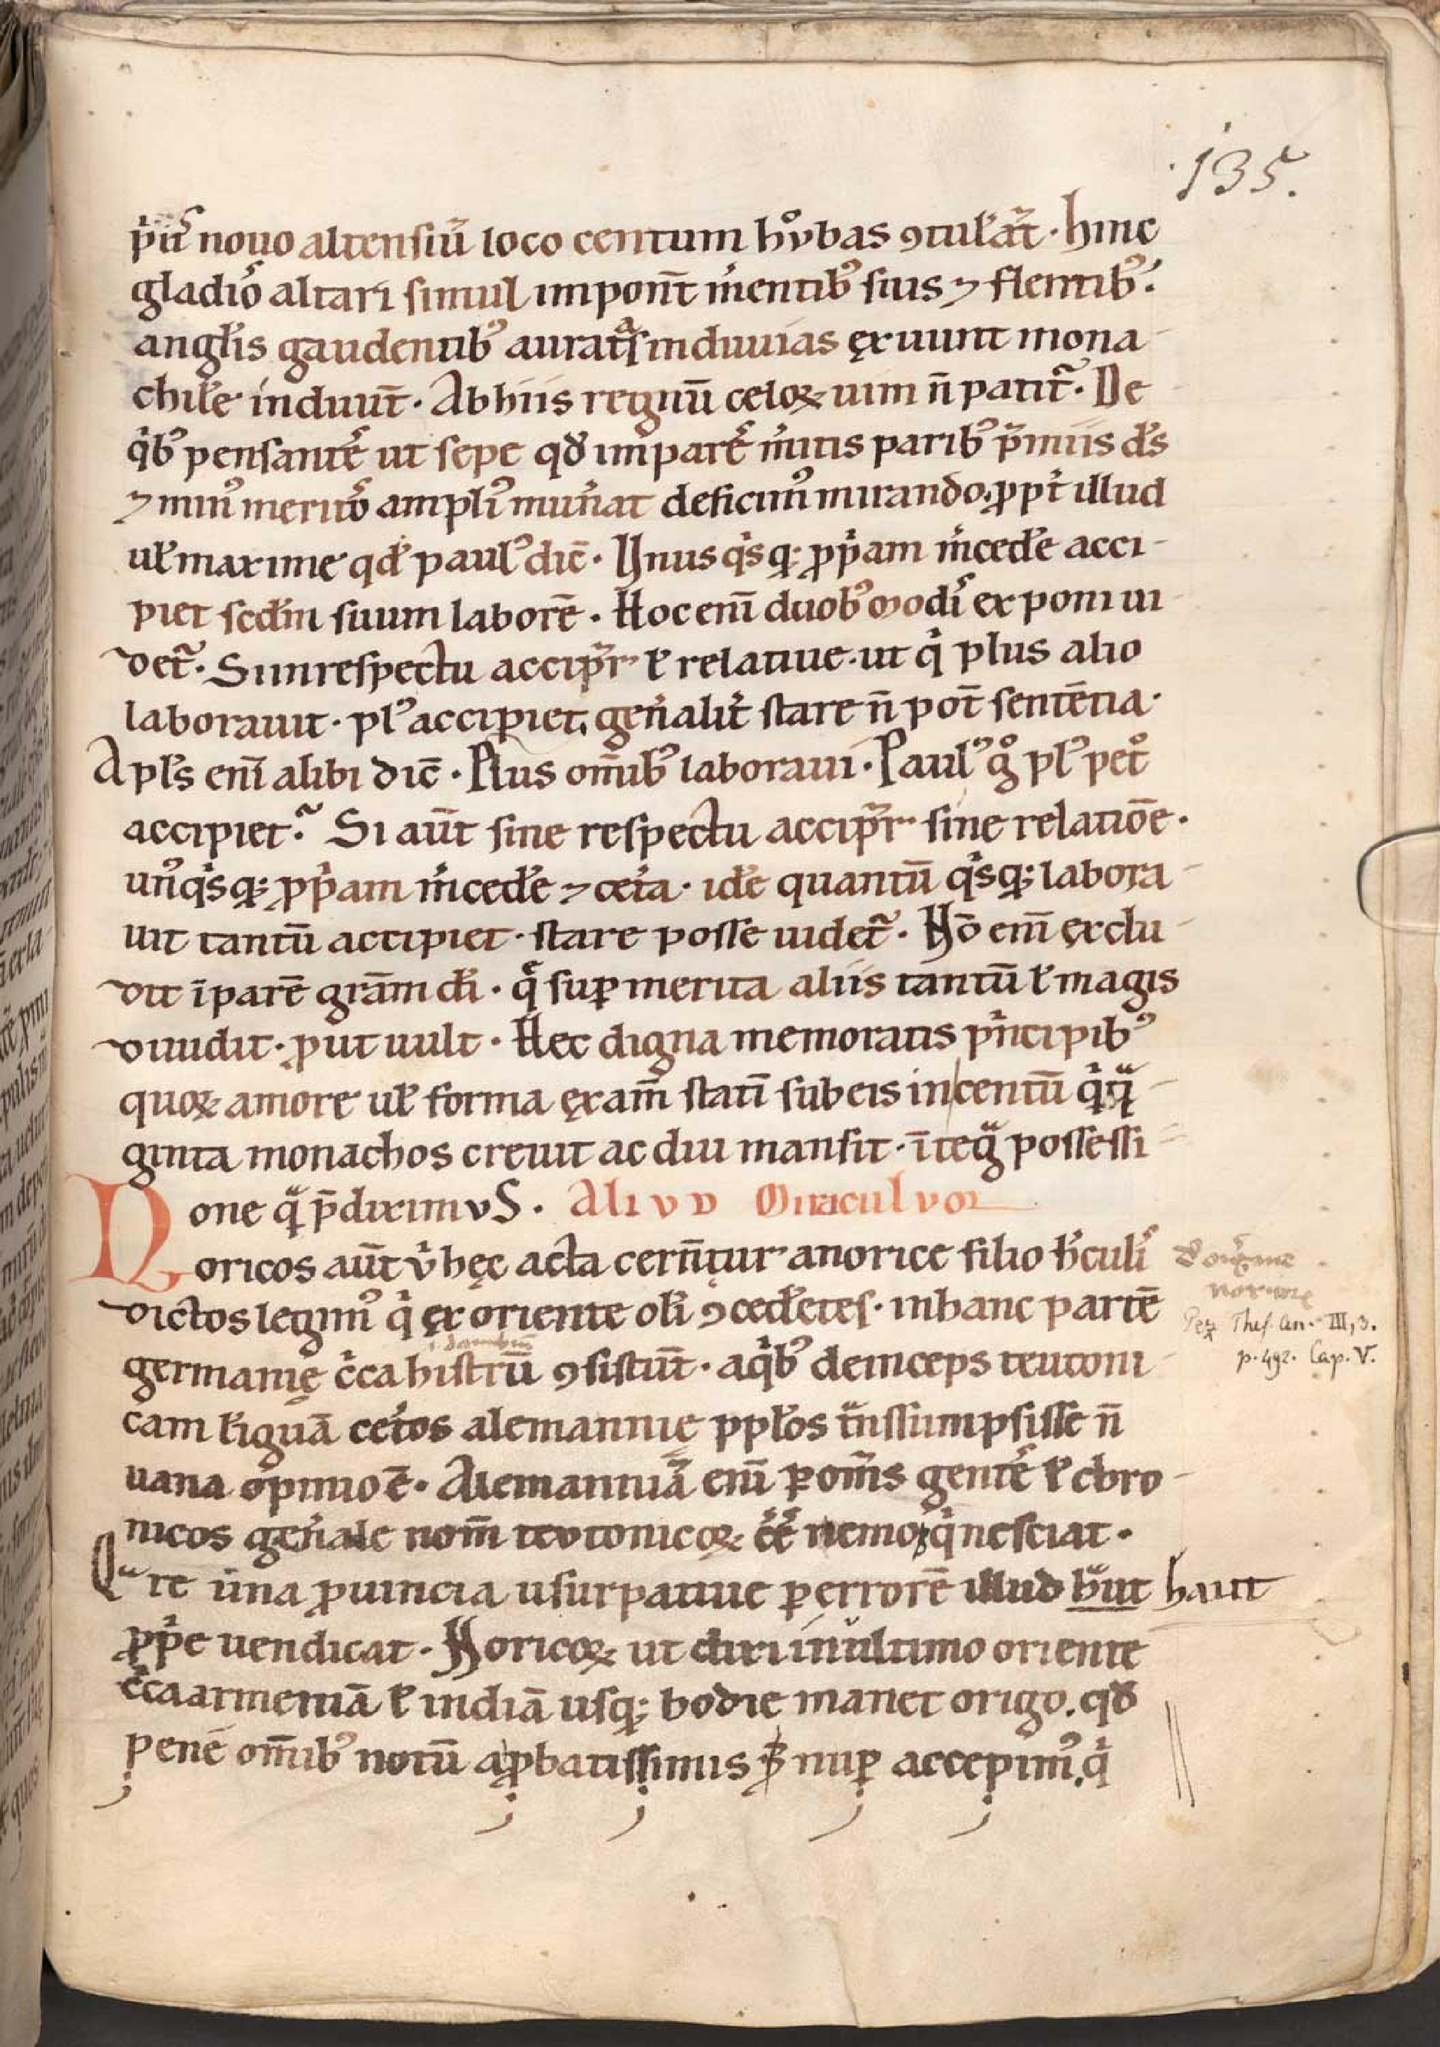 135.
p'u᷒ nouo altensiū loco centum hoͮbas ꝯtul'at᷑. hinc
gladio᷒ altari simul imponn̄t m'entib᷒ suis ⁊ flentib᷒.
anglis gaudentib᷒ auratas induuias ęxuunt mona-
chile induūt. Abhiis regnū celoꝝ uim n̄ patit᷑. De
qͥb᷒ pensante᷒ ut sepe qđ impare᷒ m'itis parib᷒ p̄miis d's
⁊ min᷒ merito᷒ ampli᷒ mun'at deficim᷒ mirando. ꝓpt' illud
uƚ maxime qđ paul᷒ dic̄. Vnus qͥsqꝫ ꝓpͥam m'cedē acci-
piet scđm suum laborē. Hoc enī duob᷒ modi᷒ exponi ui-
det᷑. Si inrespectu accip'r᷑ ƚ relatiue. ut qͥ plus alio
laborauit. pl᷒ accipiet, gen'alit' stare n̄ pot̄ sentētia.
Apl's enī alibi dic̄. Plus om̄ib᷒ laboraui. Paul᷒ gͦ pl᷒ petͦ
accipiet.᷑ Si aūt sine respectu accip'r᷑ sine relatiōe.
un᷒qͥsqꝫ ꝓpͥam m'cedē ⁊ cet'a. idē quantū qͥsqꝫ labora-
uit tantū accipiet. stare posse uidet᷑. Nō enī exclu-
dit īparē grām dī. qͤ suꝑ merita aliis tantū ƚ magis
diuidit. ꝓut uult. Hec digna memoratis pͥncipib᷒
quoꝝ amore uƚ forma ęxam̄ statī sub eis in centū qͥqͣ-
ginta monachos creuit ac diu mansit. ī teqͣ possessi-
one qͣ p̄diximuS. Aliud Miraculum
Noricos aūt v' hęc acta cern̄tur anorice filio h'culi᷒
dictos legim᷒ qͥ ęx oriente oli ꝯcedētes. inhanc partē
germanię c'ca histrū ꝯsistūt. aqͥb᷒ deinceps teutoni-
cam līguā cet'os alemannie ppl'os tͣnssumpsisse n̄
uana opinio ē. Alemanniā enī ꝑ om̄s gente᷒ ƚ chro-
nicos gen'ale nom̄ teutonicoꝝ eē᷒ nemo qͥ nesciat.
Qͣre una ꝓuincia usurpatiue ꝑ errorē illud hͣut haut
ꝓpͥe uendicat. Noricoꝝ ut dixi inultimo oriente
c'ca armeniā ƚ indiā usqꝫ hodie manet origo. qđ
pene om̄ib᷒ notū aꝓbatissimis nuꝑ accepim᷒. qͥ
d' origine
norice
Pez Thes. an. III, 3.
p. 492. Cap. V.